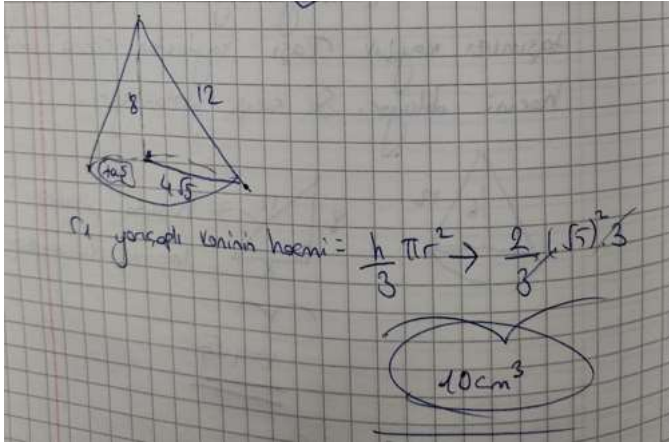 8
12
taş
4√5
r₁ yarıçaplı koninin hacmi = h/3 πr² → 2/3 (√5)² . 3
10 cm³